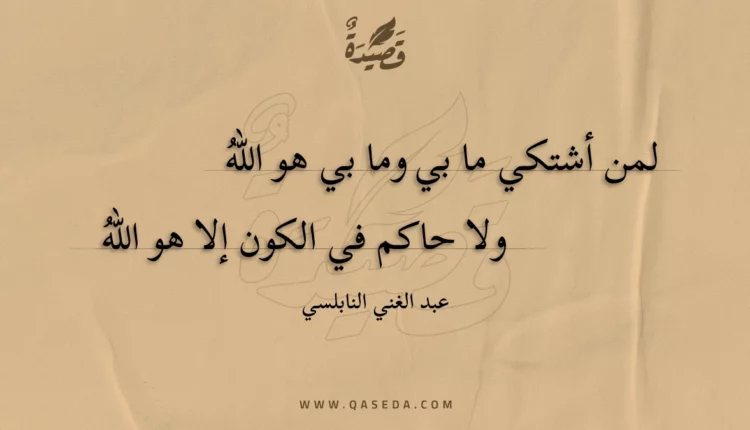 قَصِيْدَةٌ
لمن أشتكي ما بي وما بي هو اللهُ
ولا حاكم في الكون إلا هو اللهُ
عبد الغني النابلسي
WWW.QASEDA.COM